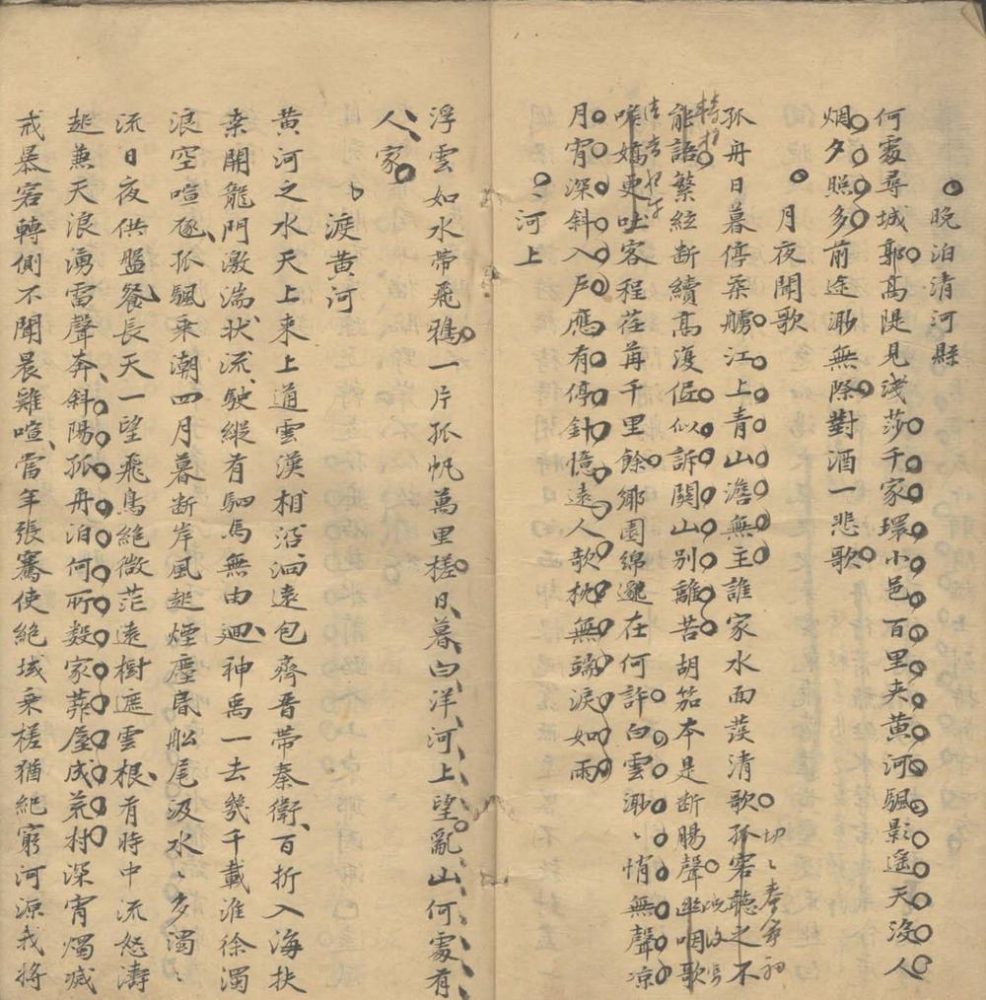 晚泊清河縣
何處尋城郭高隄見淺莎千家環小邑百里夾黄河颿影遙天沒人
烟夕照多前途渺無際對酒一悲歌
月夜聞歌
孤舟日暮停橈艣江上青山澹無主誰家水面發清歌孤客聽之不
能語繁絃斷續高復低似訴關山別離苦胡笳本是斷腸聲幽咽歌
喉嬌更吐客程荏苒千里餘鄉園綿邈在何許白雲渺、悄無聲凉
月宵深斜入戶應有停針憶遠人歌枕無端淚如雨
河上
浮雲如水帶飛鴉一片孤帆萬里槎日暮白洋河上望亂山何處有
人家
渡黄河
黄河之水天上來上道雲漢相沿洄遠包齊晋帶秦衛百折入海扶
桒開龍門激湍状流駛縱有駟馬無由迴神禹一去幾千載淮徐濁
浪空喧豗孤颿乘潮四月暮断岸風起煙塵昬船尾汲水、多濁、
流日夜供盤餐長天一望飛鳥絶微茫遠樹遮雲根有時中流怒濤
起兼天浪湧雷聲奔斜陽孤舟泊何所数家茆屋成荒村深宵燭滅
戒暴客轉側不聞晨雞喧當年張騫使絶域乘槎猶絶窮河源我將